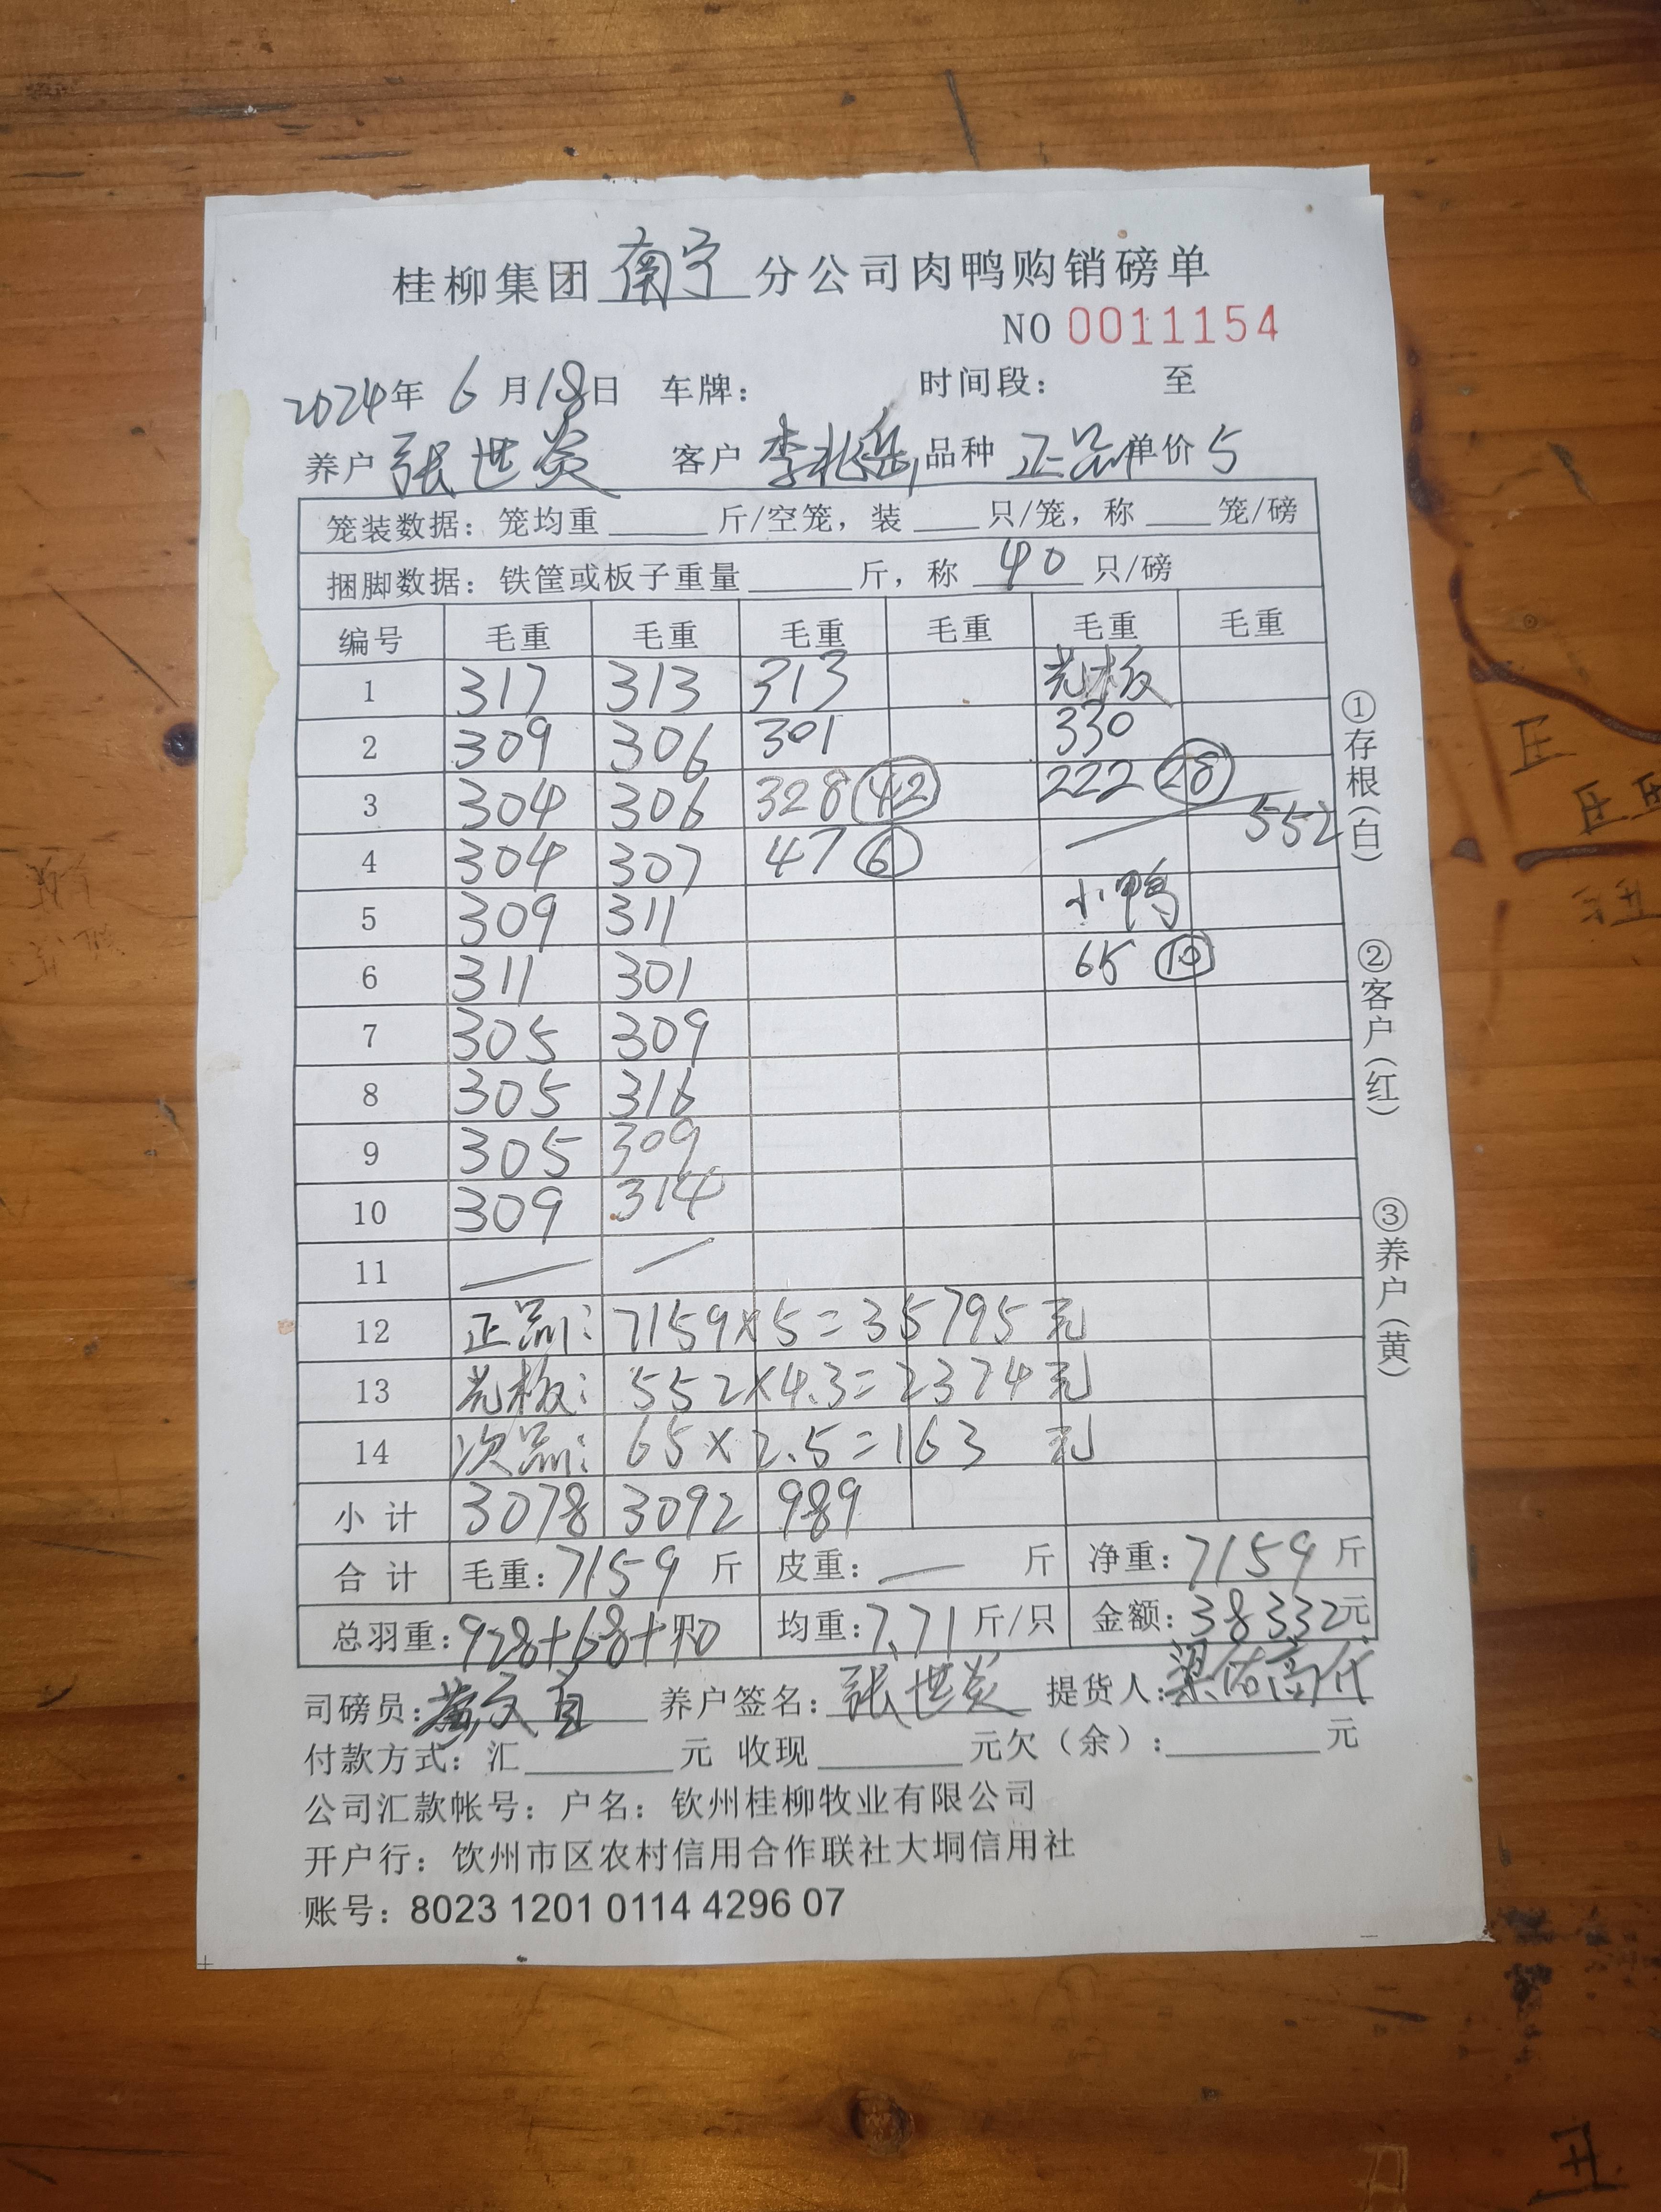 桂柳集团 南宁 分公司肉鸭购销磅单
NO 0011154
2024年 6 月18日 车牌： 时间段： 至
养户 张世炎 客户 李兆岳 品种 正品 单价 5
笼装数据：笼均重 斤/空笼，装 只/笼，称 笼/磅
捆脚数据：铁筐或板子重量 斤，称 40 只/磅
编号 毛重 毛重 毛重 毛重 毛重 毛重
1 317 313 313 光板
2 309 306 301 330
3 304 306 328 42 222 28
4 304 307 47 6 552
5 309 311 小鸭
6 311 301 65 10
7 305 309
8 305 316
9 305 309
10 309 314
11 — —
12 正品：7159×5=35795元
13 光板：552×4.3=2374元
14 次品：65×2.5=163 元
小计 3078 3092 989
合计 毛重：7159 斤 皮重：— 斤 净重：7159 斤
总羽重：928+68+10 只 均重：7.71 斤/只 金额：38332元
司磅员： 养户签名：张世炎 提货人：
付款方式：汇 元 收现 元欠（余）： 元
公司汇款帐号：户名：钦州桂柳牧业有限公司
开户行：饮州市区农村信用合作联社大垌信用社
账号：8023 1201 0114 4296 07
①存根（白）
②客户（红）
③养户（黄）